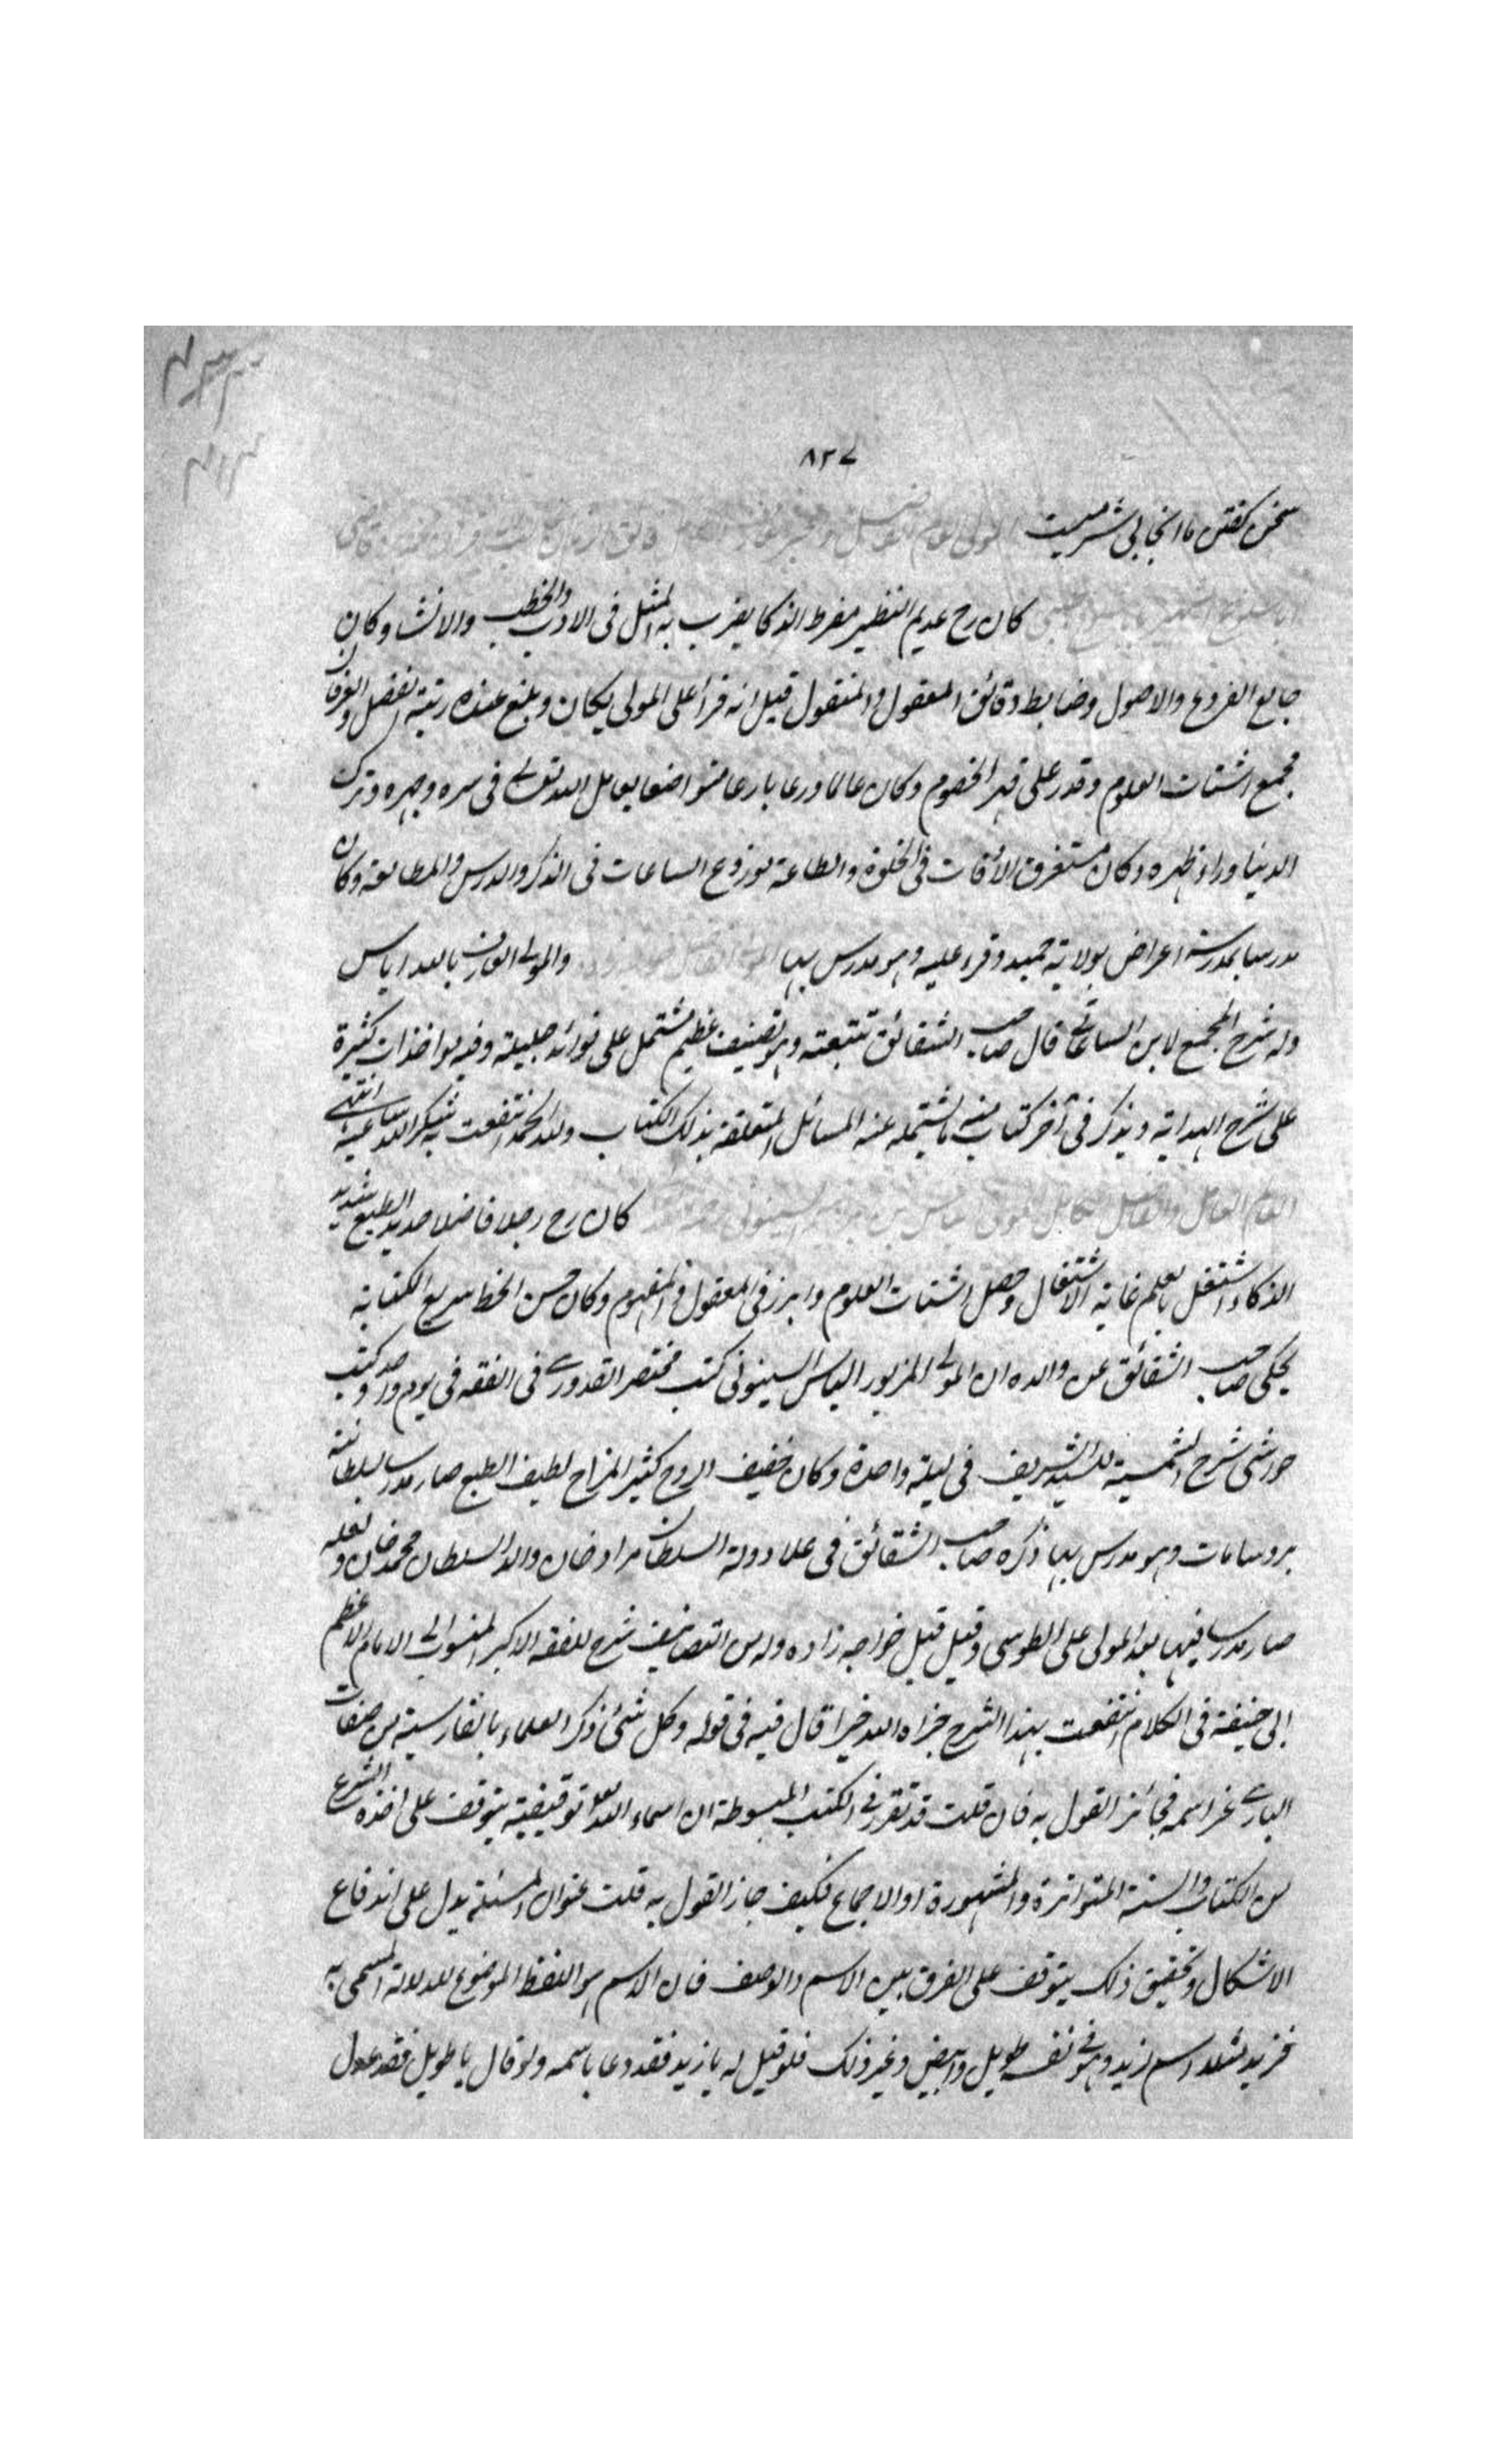 ٨٢٧
سخن گفتن ما اینجا بی شرمیست
كان رح عديم النظير مفرط الذكا يضرب به المثل فى الادب والخطب والانشا وكان
جامع الفروع والاصول وضابط دقائق المعقول والمنقول قيل انه قرأ على المولى يكان وبلغ عنده رتبة الفضل والعرفان
مجمع اشتات العلوم وقدر على قهر الخصوم وكان عالما ورعا بارعا متواضعا يعامل الله تعالى فى سره وجهره وترك
الدنيا وراء ظهره وكان مستغرق الاوقات فى الخلوة والطاعة يوزع الساعات فى الذكر والدرس والمطالعة وكان
مدرسا بمدرسة اغراض بولاية حميد وقرء عليه وهو مدرس بها والمولى العارف بالله اياس
وله شرح المجمع لابن الساعاتى قال صاحب الشقائق تتبعته وهو تصنيف عظيم مشتمل على فوائد جليلة وفيه مواخذات كثيرة
على شرح الهداية ويذكر فى آخر كتاب منه ما يشتمله عنه المسائل المتعلقة بذلك الكتاب ولله الحمد انتفعت به شكر الله ساعيه انتهى
كان رح رجلا فاضلا حديد الطبع شديد
الذكاء اشتغل بالعلم غاية الاشتغال وحصل اشتات العلوم وابرز فى المعقول والمفهوم وكان حسن الخط سريع الكتابة
يحكى صاحب الشقائق عن والده ان المولى المزبور الياس السينوبى كتب مختصر القدورى فى الفقه فى يوم واحد وكتب
حواشى شرح الشمسية للسيد الشريف فى ليلة واحدة وكان خفيف الروح كثير المزاح لطيف الطبع صار مدرسا بسلطانية
بروسا مات وهو مدرس بها ذكره صاحب الشقائق فى علماء دولة السلطان مراد خان والد السلطان محمد خان ولعله
صار مدرسا فيها بعد المولى على الطوسى وقيل قبل خواجه زاده وله من التصانيف شرح للفقه الاكبر المنسوب الى الامام الاعظم
ابى حنيفة فى الكلام انتفعت بهذا الشرح جزاه الله خيرا قال فيه فى قوله وكل شئ ذكر العلماء بالفارسية من صفات
البارى عز اسمه فجائز القول به فان قلت قد تقرر فى الكتب المبسوطة ان اسماء الله توقيفية يتوقف على اخذه الشرع
من الكتاب والسنة المتواترة والمشهورة او الاجماع فكيف جاز القول به قلت عنوان المسئلة يدل على اندفاع
الاشكال وتحقيق ذلك يتوقف على الفرق بين الاسم والوصف فان الاسم هو اللفظ الموضوع للدلالة المسمى به
فزيد مثلا اسم زيد وهو فى نفسه طويل وابيض وغير ذلك فلو قيل له يا زيد فقد دعا باسمه ولو قال يا طويل فقد عدل